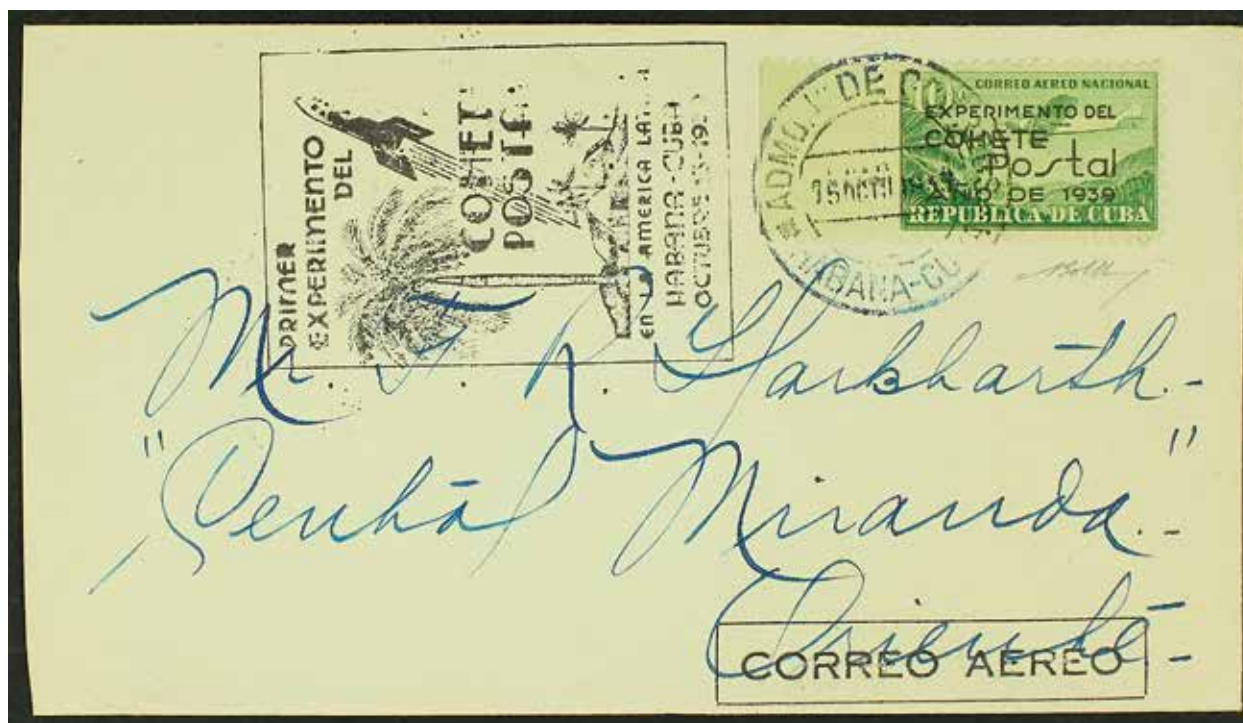 PRIMER
EXPERIMENTO
DEL
COHETE
POSTAL
EN LA AMERICA LATINA
HABANA-CUBA
OCTUBRE-15-19
ADMON. DE CO
15 OCTU 1939
HABANA-CU
10
CORREO AEREO NACIONAL
EXPERIMENTO DEL
COHETE
Postal
AÑO DE 1939
REPUBLICA DE CUBA
Mr F R
"Central Miranda"
Oriente
CORREO AEREO